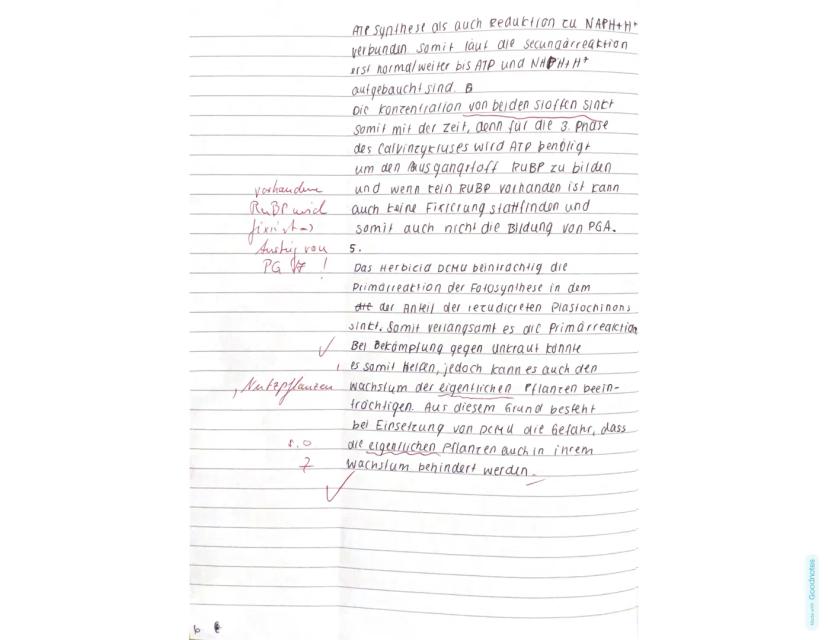 ATP synthese als auch Reduktion zu NAPH+H⁺
verbunden somit läuft die Secundärreaktion
erst normal weiter bis ATP und NHPH+H⁺
aufgebaucht sind.
Die Konzentration von beiden Stoffen sinkt
somit mit der Zeit, denn für die 3. Phase
des Calvinzykluses wird ATP benötigt
um den Ausgangstoff RUBP zu bilden
und wenn kein RUBP vorhanden ist kann
auch keine Fixierung stattfinden und
somit auch nicht die Bildung von PGA.
vorhandene
RuBP wird
fixiert →
Anstieg von
PG !
5.
Das Herbicid DCMU beinträchtig die
Primärreaktion der Fotosynthese in dem
die der Anteil der reduzierten Plastochinons
sinkt. Somit verlangsamt es die Primärreaktion
Bei Bekämpfung gegen Unkraut könnte
es somit Helfen, jedoch kann es auch den
Wachstum der eigentlichen Pflanzen beein-
trächtigen. Aus diesem Grund besteht
bei Einsetzung von DCMU die Gefahr, dass
die eigentlichen Pflanzen auch in ihrem
Wachstum behindert werden.
, Nutzpflanzen
s.o
Made with Goodnotes